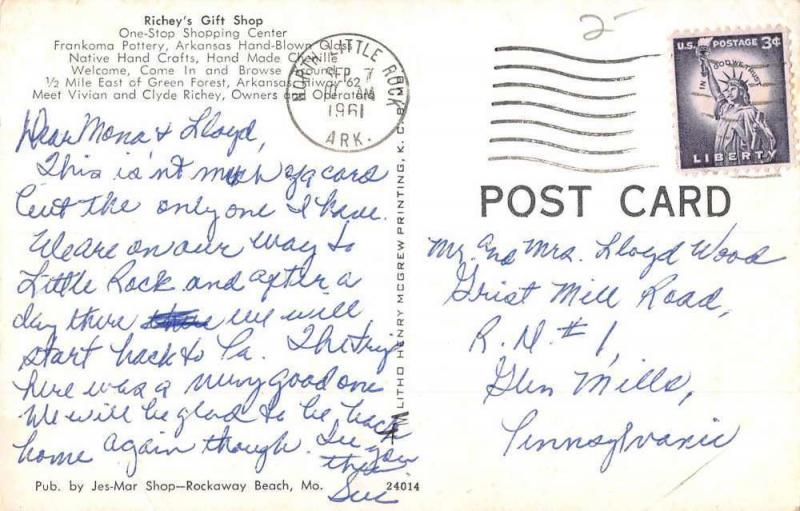 Richey's Gift Shop
One-Stop Shopping Center
Frankoma Pottery, Arkansas Hand-Blown Glass
Native Hand Crafts, Hand Made Chenille
Welcome, Come In and Browse Around
½ Mile East of Green Forest, Arkansas, Hiway 62
Meet Vivian and Clyde Richey, Owners and Operators
Dear Mona & Lloyd,
This is'nt much of a card
but the only one I have.
We are on our way to
Little Rock and after a
day there we will
start back to Pa. The trip
here was a very good one
We will be glad to be back
home again though. See you
then
Sue
Pub. by Jes-Mar Shop—Rockaway Beach, Mo.
24014
LITHO HENRY MCGREW PRINTING, K. C. 8, M
NORTH LITTLE ROCK
SEP 7
AM
1961
ARK.
2-
U.S. POSTAGE 3¢
IN GOD WE TRUST
LIBERTY
POST CARD
Mr. and Mrs. Lloyd Wood
Grist Mill Road,
R. D. # 1,
Glen Mills,
Pennsylvania